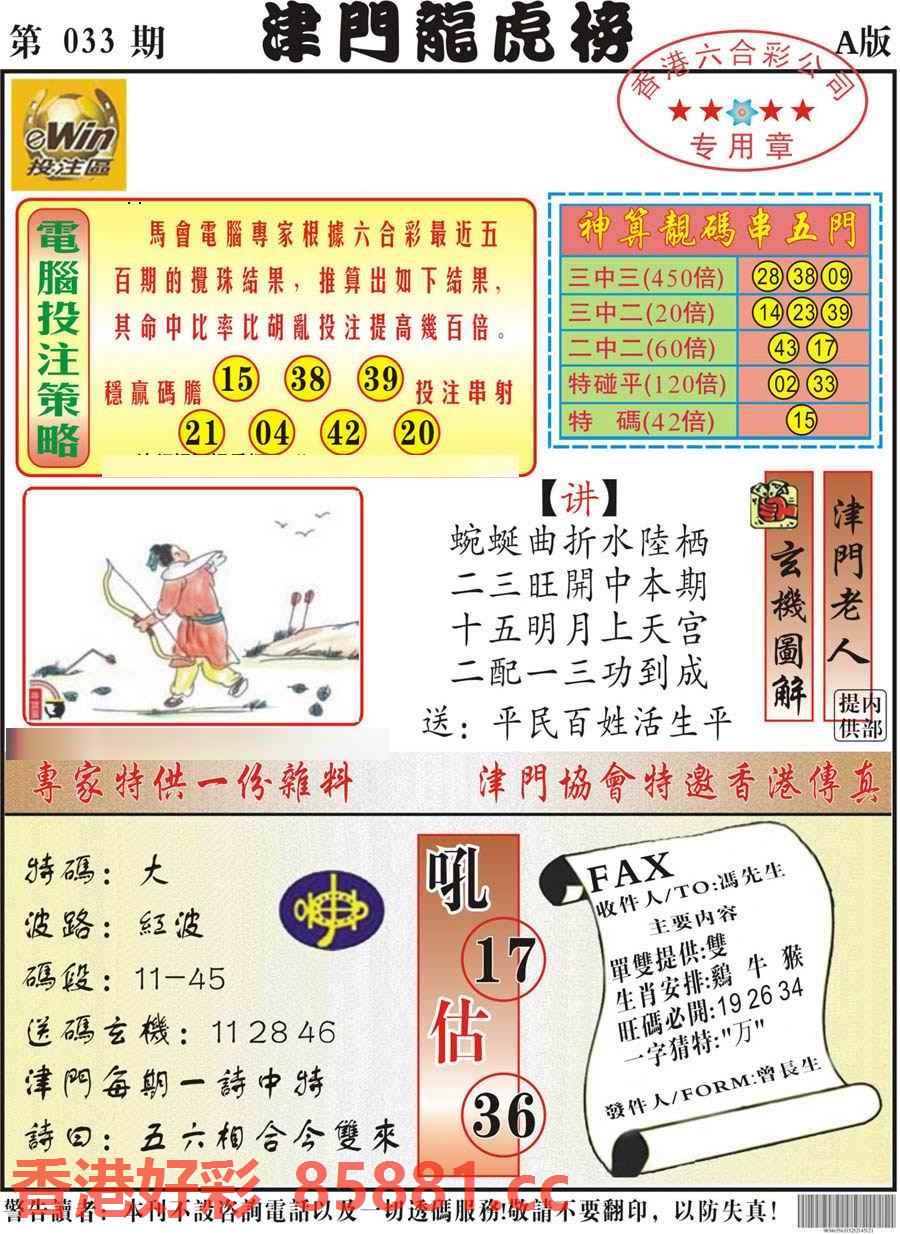 第 033 期
津門龍虎榜
A版
香港六合彩公司
专用章
eWin
投注區
電腦投注策略
馬會電腦專家根據六合彩最近五
百期的攪珠結果，推算出如下結果，
其命中比率比胡亂投注提高幾百倍。
穩贏碼膽 15 38 39 投注串射
21 04 42 20
神算靚碼串五門
三中三(450倍) 28 38 09
三中二(20倍) 14 23 39
二中二(60倍) 43 17
特碰平(120倍) 02 33
特 碼(42倍) 15
【讲】
蜿蜒曲折水陸栖
二三旺開中本期
十五明月上天宫
二配一三功到成
送：平民百姓活生平
玄機圖解
津門老人
内部提供
專家特供一份雜料
津門協會特邀香港傳真
特碼：大
波路：紅波
碼段：11-45
送碼玄機：11 28 46
津門每期一詩中特
詩曰：五六相合今雙來
吼
17
估
36
FAX
收件人/TO:馮先生
主要内容
單雙提供:雙
生肖安排:鷄 牛 猴
旺碼必開:19 26 34
一字猜特:"万"
發件人/FORM:曾長生
香港好彩 85881.cc
警告讀者：本刊不設咨詢電話以及一切透碼服務!敬請不要翻印，以防失真！